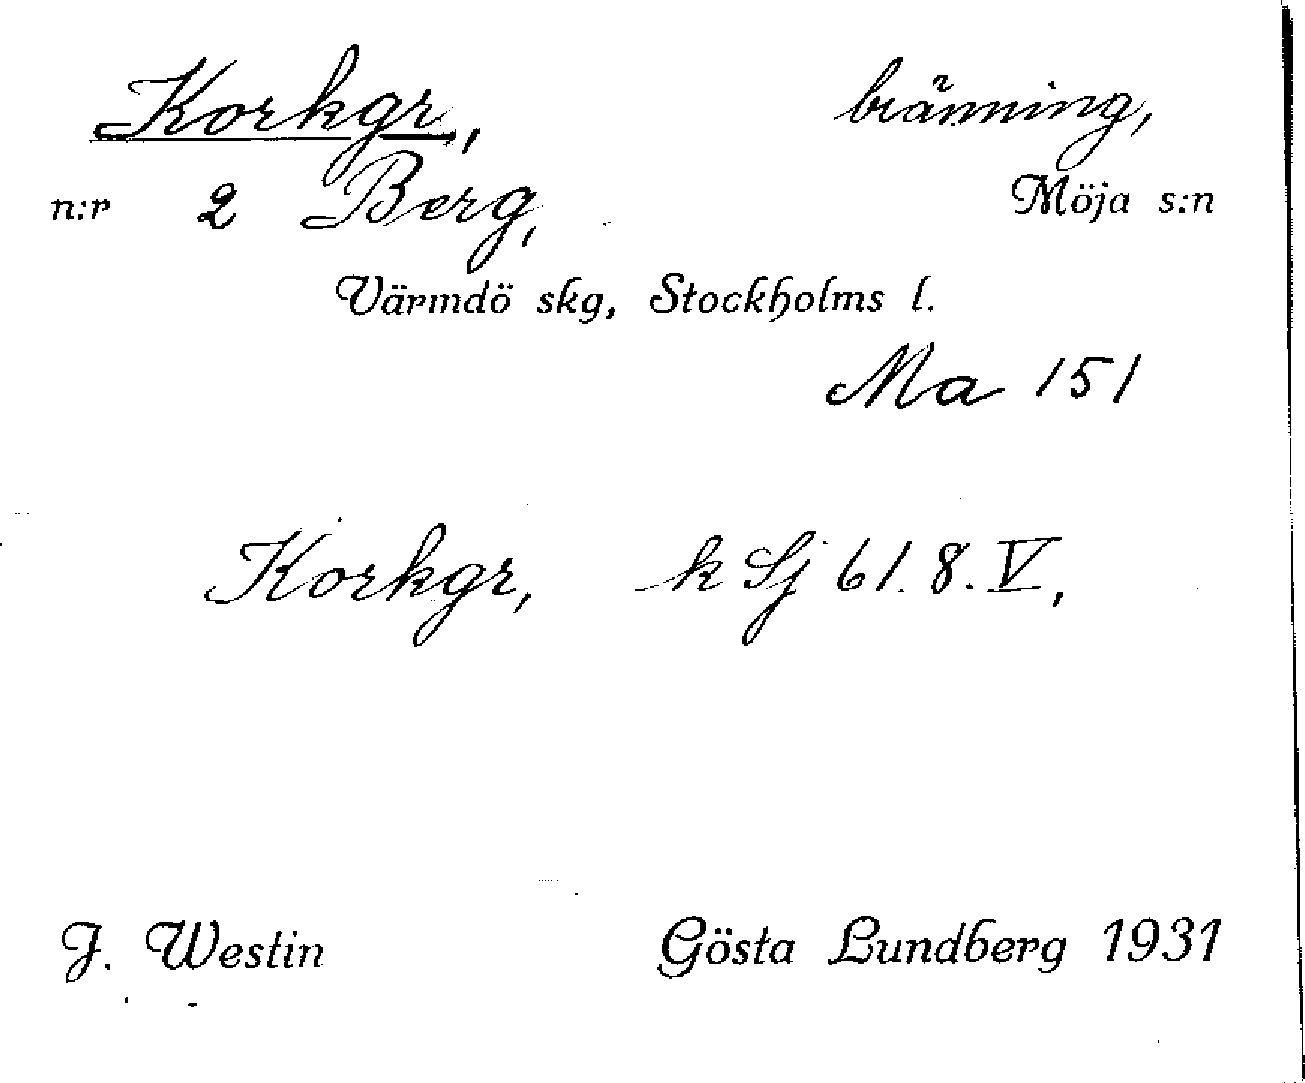 Korkgr, bränning,
n:r 2 Berg, Möja s:n
Värmdö skg, Stockholms l.
Ma 151
Korkgr, k Sj 61. 8. V,
J. Westin Gösta Lundberg 1931